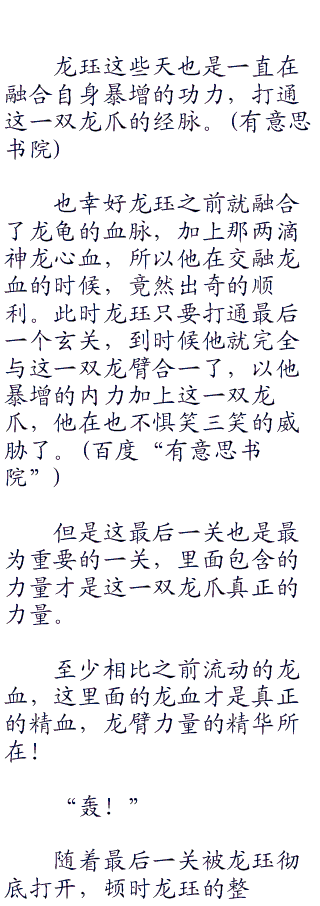 龙珏这些天也是一直在
融合自身暴增的功力，打通
这一双龙爪的经脉。(有意思
书院)
也幸好龙珏之前就融合
了龙龟的血脉，加上那两滴
神龙心血，所以他在交融龙
血的时候，竟然出奇的顺
利。此时龙珏只要打通最后
一个玄关，到时候他就完全
与这一双龙臂合一了，以他
暴增的内力加上这一双龙
爪，他在也不惧笑三笑的威
胁了。(百度“有意思书
院”)
但是这最后一关也是最
为重要的一关，里面包含的
力量才是这一双龙爪真正的
力量。
至少相比之前流动的龙
血，这里面的龙血才是真正
的精血，龙臂力量的精华所
在！
“轰！”
随着最后一关被龙珏彻
底打开，顿时龙珏的整